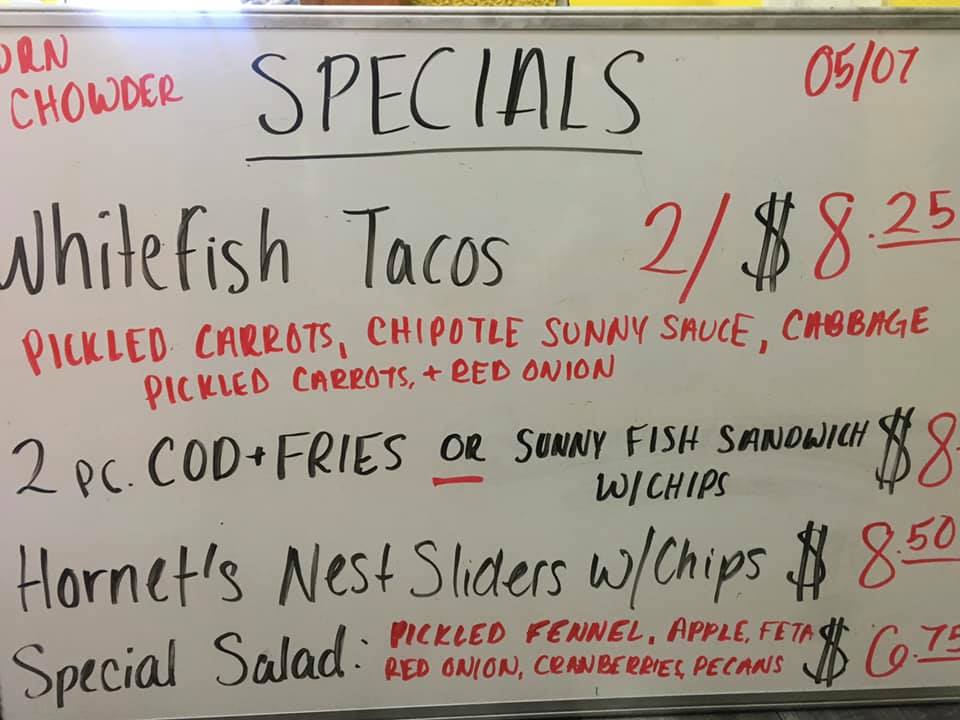 ORN
CHOWDER
SPECIALS
05/07
Whitefish Tacos 2/$8.25
PICKLED CARROTS, CHIPOTLE SUNNY SAUCE, CABBAGE
PICKLED CARROTS, + RED ONION
2 pc. COD+FRIES OR SUNNY FISH SANDWICH $8.
W/CHIPS
Hornet's Nest Sliders w/Chips $8.50
Special Salad: PICKLED FENNEL, APPLE, FETA $6.75
RED ONION, CRANBERRIES, PECANS